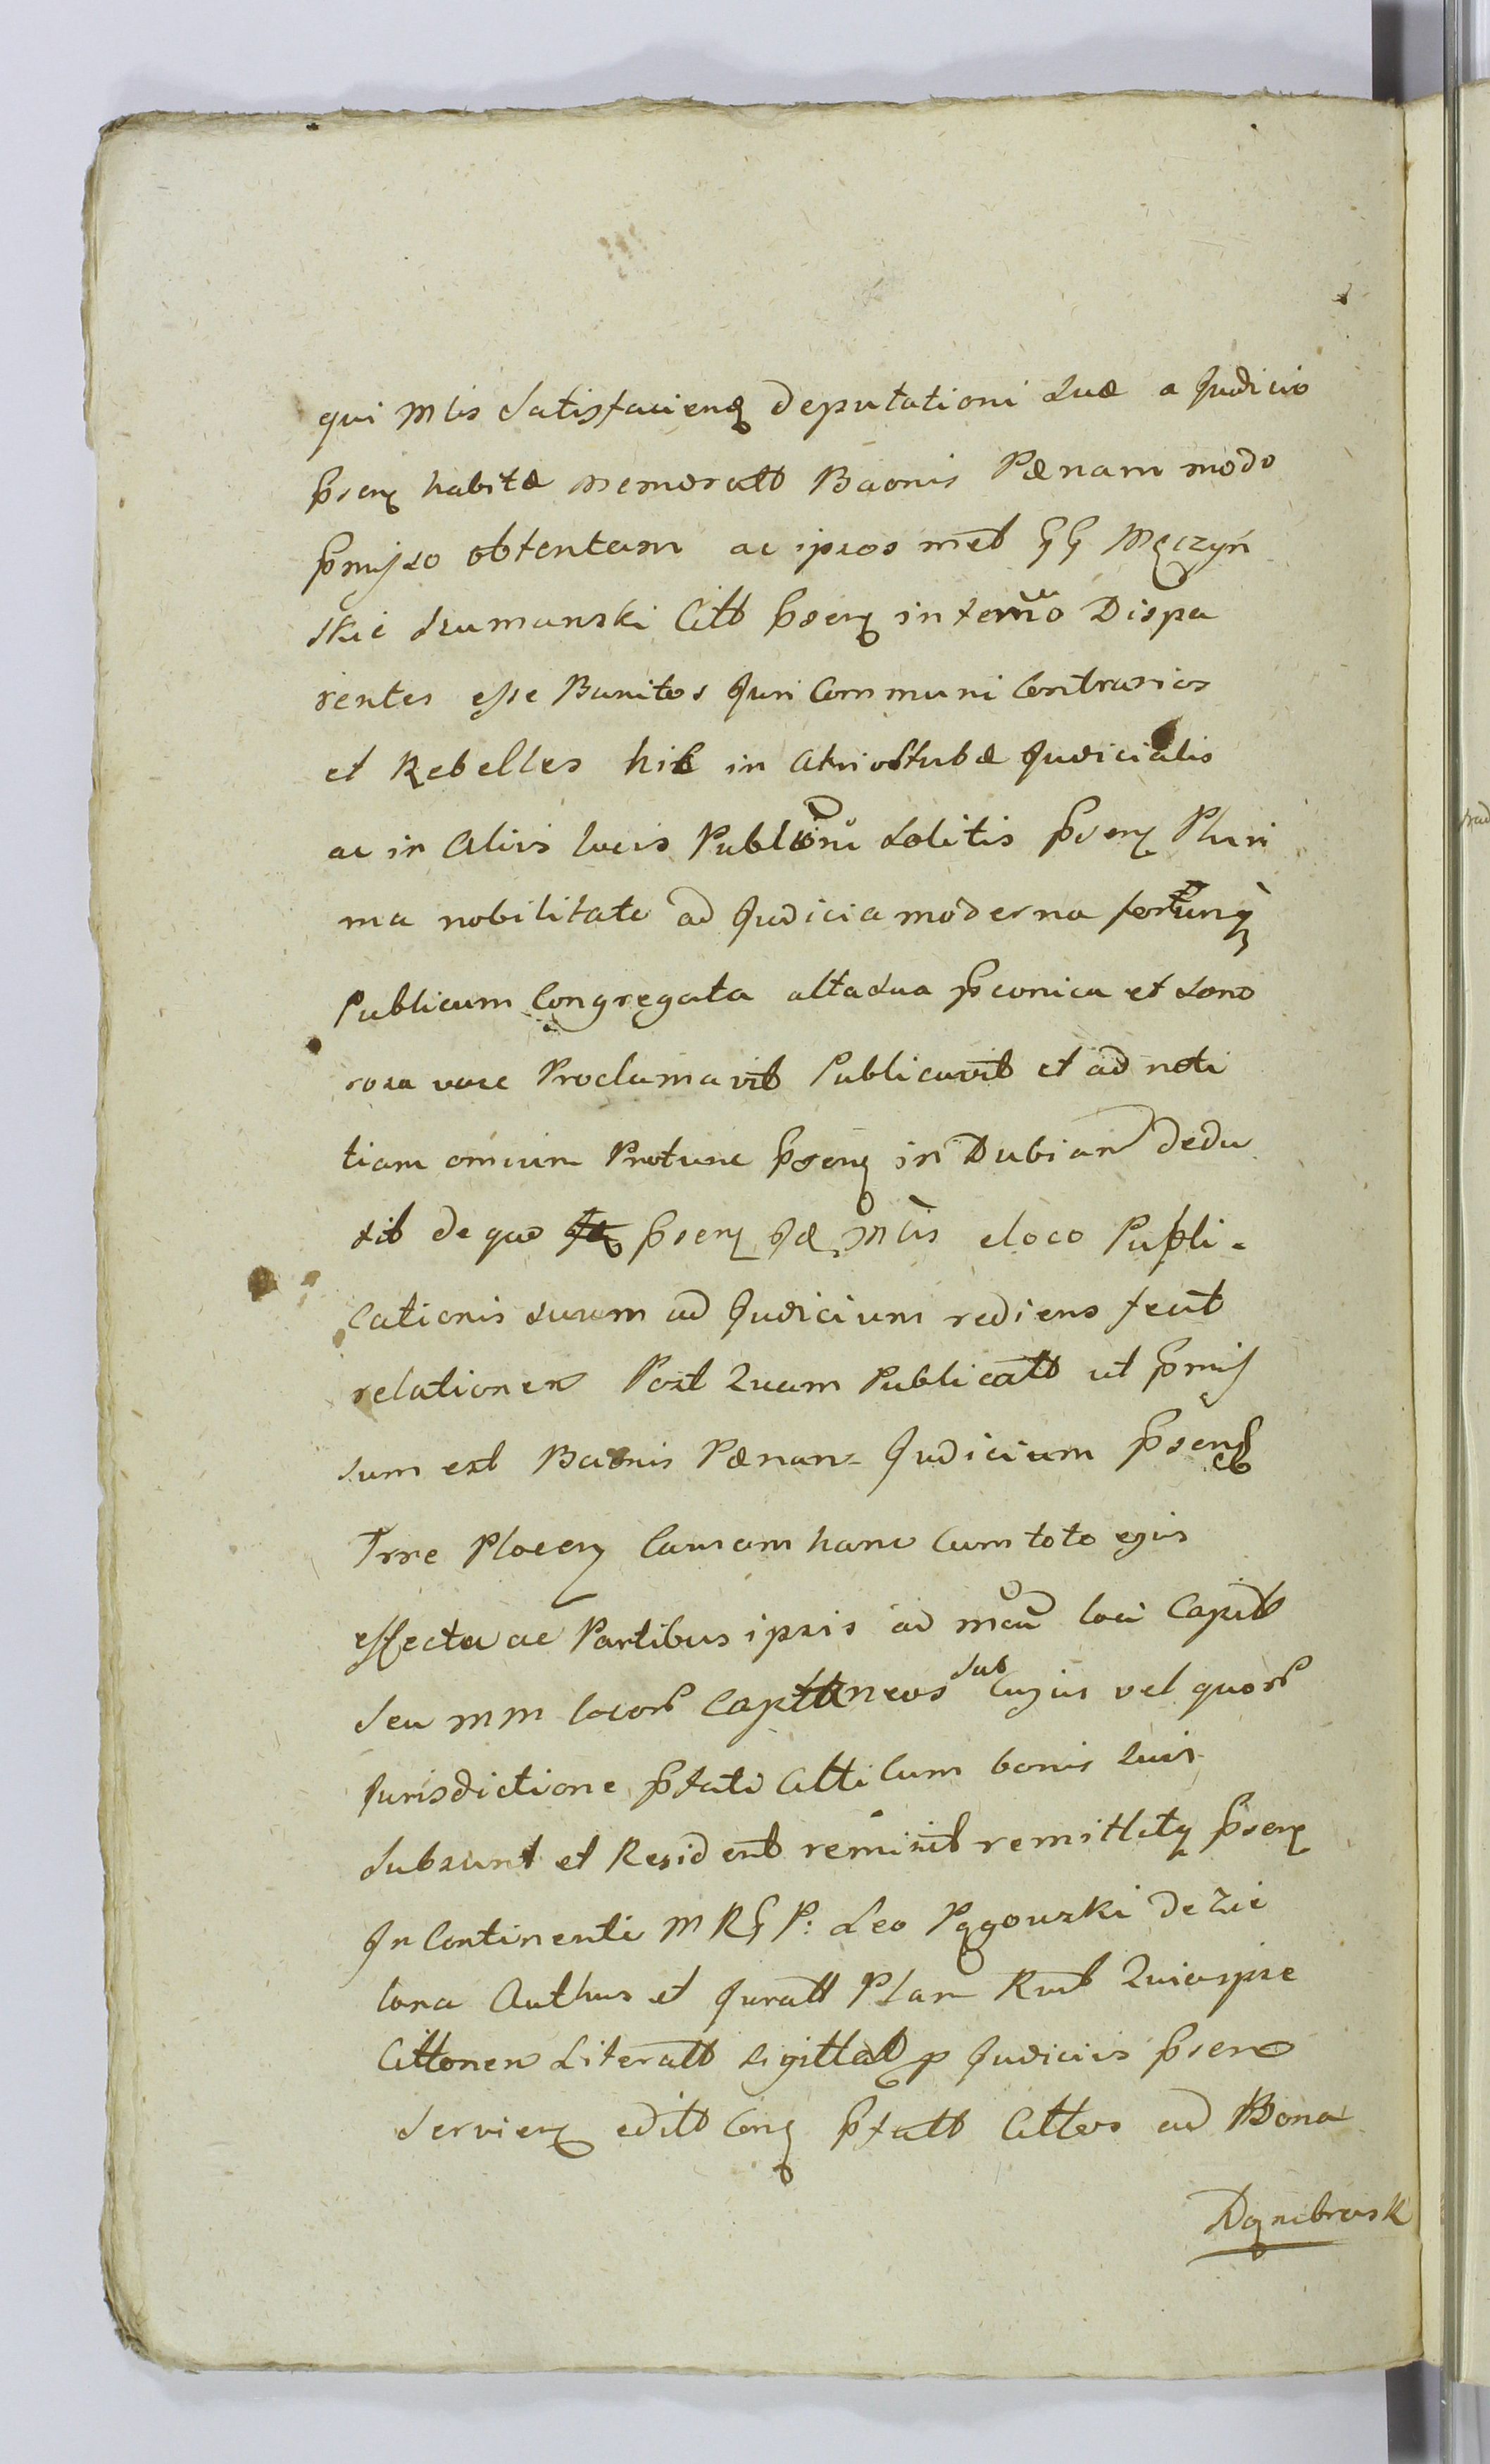 qui Mlis Satisfacienꝗ Deputationi Suæ a Judicio
pseñ habitæ memoratt Baonis Pænam modo
pmisso obtentam ac ipsos met GG Męczyń
skie Szumanski Citt pseñ in termo Dispa
rentes esse Banitos Juri Communi Contrarios
et Rebelles hic in Atrio Stubæ Judicialis
ac in Aliis locis Publioni Solitis pseñ Pluri
ma nobilitate ad Judicia moderna
Publicum Congregata alta sua pconica et Sono
rosa voce Proclamavit Publicavit et ad noti
tiam omnium Protunc pseñ in Dubiam dedu
xit de quo pseñ Idę Mlis e loco Publi-
cationis suum ad Judicium rediens fecit
relationem Post Quam Publicatt ut pmis
sum est Baonis Pænam Judicium pseñ
Trre Plocen Causam hanc Cum toto ejus
effectu ac Partibus ipsis ad mcu loci Capit
Seu MM locor Captaneos sub Cujus vel quor
Jurisdictione pfati Citti Cum bonis suis
Subsunt et Resident remisit remittitq pseñ
In Continenti M RG P: Leo Pągowski de Zie
lona Authus et Juratt Plan Rnt Quia ipse
Cittonem Literatt Sigillat p Judiciis pseñ
Servien editt Con pfatt Cittos ad Bona
Dąmbrowsk